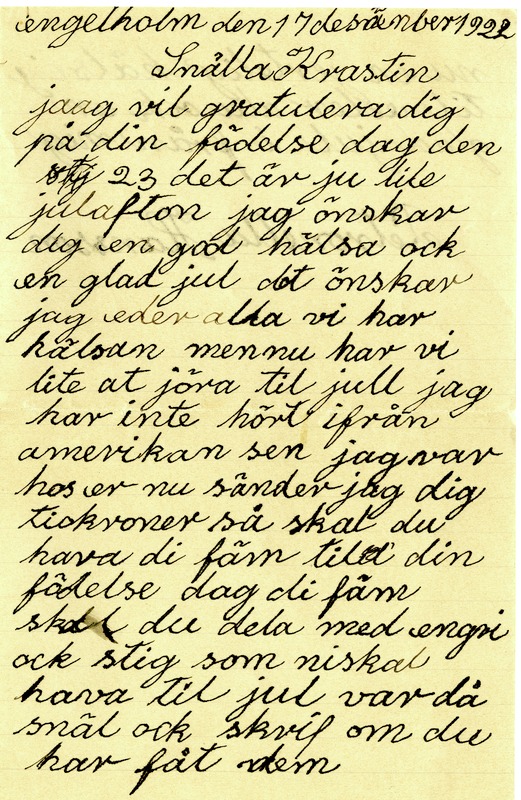 engelholm den 17 desämber 1922
Snälla Krastin
jaag vil gratulera dig
på din födelse dag den
23 det är ju lite
julafton jag önskar
dig en god hälsa ock
en glad jul dt önskar
jag eder alla vi har
hälsan men nu har vi
lite at jöra til jull jag
har inte hört ifrån
amerikan sen jag var
hos er nu sänder jag dig
tiokroner så skal du
hava di fäm till din
födelse dag di fäm
skal du dela med engri
ock stig som niskal
hava til jul var då
snäl ock skrif om du
har fåt dem